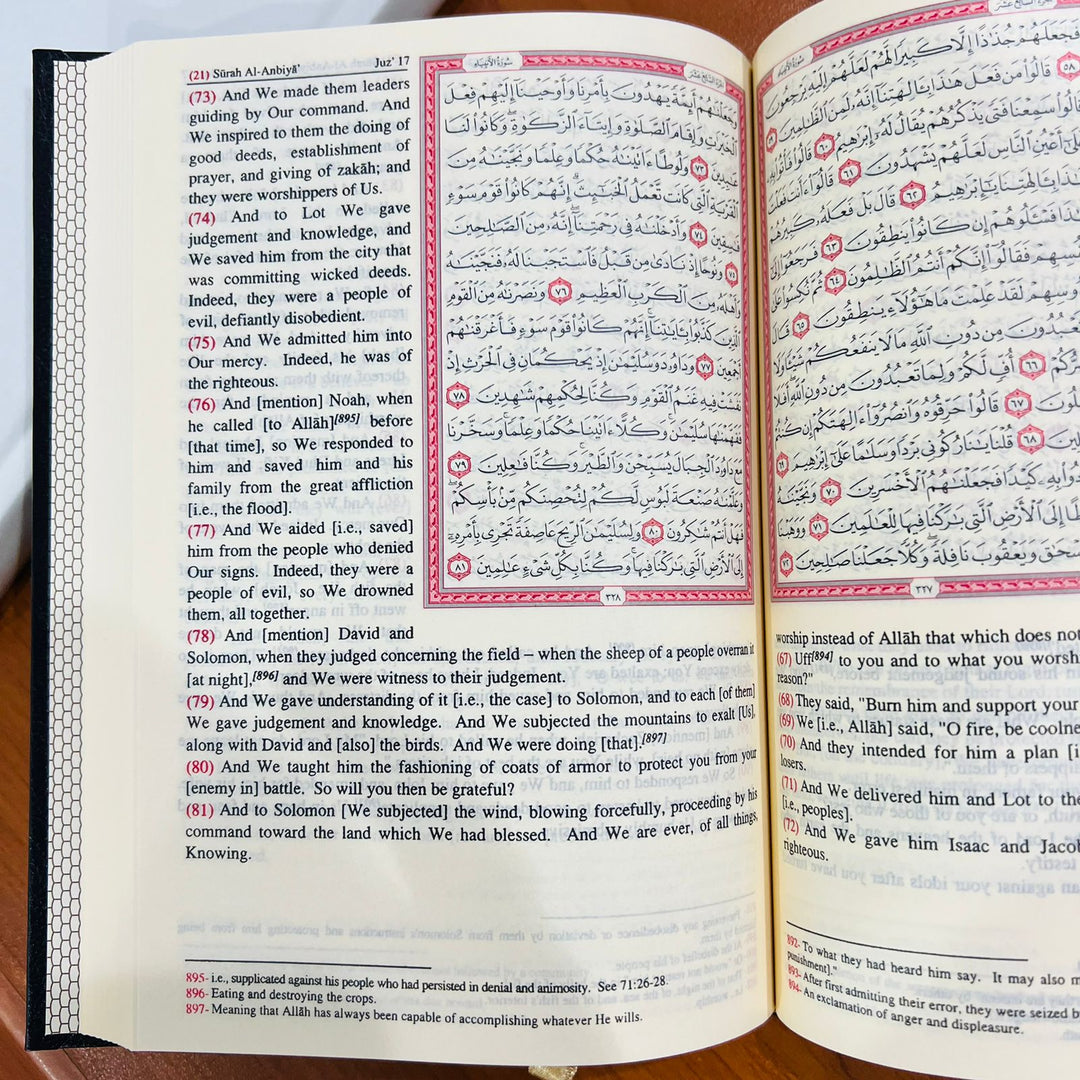 (21) Sūrah Al-Anbiyā' Juz' 17
(73) And We made them leaders
guiding by Our command. And
We inspired to them the doing of
good deeds, establishment of
prayer, and giving of zakāh; and
they were worshippers of Us.
(74) And to Lot We gave
judgement and knowledge, and
We saved him from the city that
was committing wicked deeds.
Indeed, they were a people of
evil, defiantly disobedient.
(75) And We admitted him into
Our mercy. Indeed, he was of
the righteous.
(76) And [mention] Noah, when
he called [to Allāh][895] before
[that time], so We responded to
him and saved him and his
family from the great affliction
[i.e., the flood].
(77) And We aided [i.e., saved]
him from the people who denied
Our signs. Indeed, they were a
people of evil, so We drowned
them, all together.
(78) And [mention] David and
Solomon, when they judged concerning the field – when the sheep of a people overran it
[at night],[896] and We were witness to their judgement.
(79) And We gave understanding of it [i.e., the case] to Solomon, and to each [of them]
We gave judgement and knowledge. And We subjected the mountains to exalt [Us],
along with David and [also] the birds. And We were doing [that].[897]
(80) And We taught him the fashioning of coats of armor to protect you from your
[enemy in] battle. So will you then be grateful?
(81) And to Solomon [We subjected] the wind, blowing forcefully, proceeding by his
command toward the land which We had blessed. And We are ever, of all things,
Knowing.
895- i.e., supplicated against his people who had persisted in denial and animosity. See 71:26-28.
896- Eating and destroying the crops.
897- Meaning that Allāh has always been capable of accomplishing whatever He wills.
الجزء السابع عشر سورة الأنبياء
وَجَعَلْنَٰهُمْ أَئِمَّةً يَهْدُونَ بِأَمْرِنَا وَأَوْحَيْنَآ إِلَيْهِمْ فِعْلَ
ٱلْخَيْرَٰتِ وَإِقَامَ ٱلصَّلَوٰةِ وَإِيتَآءَ ٱلزَّكَوٰةِ ۖ وَكَانُوا۟ لَنَا
عَٰبِدِينَ ٧٣ وَلُوطًا ءَاتَيْنَٰهُ حُكْمًا وَعِلْمًا وَنَجَّيْنَٰهُ مِنَ
ٱلْقَرْيَةِ ٱلَّتِى كَانَت تَّعْمَلُ ٱلْخَبَٰٓئِثَ ۗ إِنَّهُمْ كَانُوا۟ قَوْمَ سَوْءٍ
فَٰسِقِينَ ٧٤ وَأَدْخَلْنَٰهُ فِى رَحْمَتِنَآ ۖ إِنَّهُۥ مِنَ ٱلصَّٰلِحِينَ
٧٥ وَنُوحًا إِذْ نَادَىٰ مِن قَبْلُ فَٱسْتَجَبْنَا لَهُۥ فَنَجَّيْنَٰهُ
وَأَهْلَهُۥ مِنَ ٱلْكَرْبِ ٱلْعَظِيمِ ٧٦ وَنَصَرْنَٰهُ مِنَ ٱلْقَوْمِ
ٱلَّذِينَ كَذَّبُوا۟ بِـَٔايَٰتِنَآ ۚ إِنَّهُمْ كَانُوا۟ قَوْمَ سَوْءٍ فَأَغْرَقْنَٰهُمْ
أَجْمَعِينَ ٧٧ وَدَاوُۥدَ وَسُلَيْمَٰنَ إِذْ يَحْكُمَانِ فِى ٱلْحَرْثِ إِذْ
نَفَشَتْ فِيهِ غَنَمُ ٱلْقَوْمِ وَكُنَّا لِحُكْمِهِمْ شَٰهِدِينَ ٧٨
فَفَهَّمْنَٰهَا سُلَيْمَٰنَ ۚ وَكُلًّا ءَاتَيْنَا حُكْمًا وَعِلْمًا ۚ وَسَخَّرْنَا
مَعَ دَاوُۥدَ ٱلْجِبَالَ يُسَبِّحْنَ وَٱلطَّيْرَ ۚ وَكُنَّا فَٰعِلِينَ ٧٩
وَعَلَّمْنَٰهُ صَنْعَةَ لَبُوسٍ لَّكُمْ لِتُحْصِنَكُم مِّنۢ بَأْسِكُمْ ۖ
فَهَلْ أَنتُمْ شَٰكِرُونَ ٨٠ وَلِسُلَيْمَٰنَ ٱلرِّيحَ عَاصِفَةً تَجْرِى بِأَمْرِهِۦٓ
إِلَى ٱلْأَرْضِ ٱلَّتِى بَٰرَكْنَا فِيهَا ۚ وَكُنَّا بِكُلِّ شَىْءٍ عَٰلِمِينَ ٨١
٣٢٨
الجزء السابع عشر سورة الأنبياء
فَجَعَلَهُمْ جُذَٰذًا إِلَّا كَبِيرًا لَّهُمْ لَعَلَّهُمْ إِلَيْهِ يَرْجِعُونَ
٥٨ قَالُوا۟ مَن فَعَلَ هَٰذَا بِـَٔالِهَتِنَآ إِنَّهُۥ لَمِنَ ٱلظَّٰلِمِينَ ٥٩
قَالُوا۟ سَمِعْنَا فَتًى يَذْكُرُهُمْ يُقَالُ لَهُۥٓ إِبْرَٰهِيمُ ٦٠ قَالُوا۟ فَأْتُوا۟ بِهِۦ
عَلَىٰٓ أَعْيُنِ ٱلنَّاسِ لَعَلَّهُمْ يَشْهَدُونَ ٦١ قَالُوٓا۟ ءَأَنتَ فَعَلْتَ
هَٰذَا بِـَٔالِهَتِنَا يَٰٓإِبْرَٰهِيمُ ٦٢ قَالَ بَلْ فَعَلَهُۥ كَبِيرُهُمْ
هَٰذَا فَسْـَٔلُوهُمْ إِن كَانُوا۟ يَنطِقُونَ ٦٣ فَرَجَعُوٓا۟ إِلَىٰٓ
أَنفُسِهِمْ فَقَالُوٓا۟ إِنَّكُمْ أَنتُمُ ٱلظَّٰلِمُونَ ٦٤ ثُمَّ نُكِسُوا۟ عَلَىٰ
رُءُوسِهِمْ لَقَدْ عَلِمْتَ مَا هَٰٓؤُلَآءِ يَنطِقُونَ ٦٥ قَالَ
أَفَتَعْبُدُونَ مِن دُونِ ٱللَّهِ مَا لَا يَنفَعُكُمْ شَيْـًٔا وَلَا
يَضُرُّكُمْ ٦٦ أُفٍّ لَّكُمْ وَلِمَا تَعْبُدُونَ مِن دُونِ ٱللَّهِ ۖ أَفَلَا
تَعْقِلُونَ ٦٧ قَالُوا۟ حَرِّقُوهُ وَٱنصُرُوٓا۟ ءَالِهَتَكُمْ إِن كُنتُمْ
فَٰعِلِينَ ٦٨ قُلْنَا يَٰنَارُ كُونِى بَرْدًا وَسَلَٰمًا عَلَىٰٓ إِبْرَٰهِيمَ ٦٩
وَأَرَادُوا۟ بِهِۦ كَيْدًا فَجَعَلْنَٰهُمُ ٱلْأَخْسَرِينَ ٧٠ وَنَجَّيْنَٰهُ
وَلُوطًا إِلَى ٱلْأَرْضِ ٱلَّتِى بَٰرَكْنَا فِيهَا لِلْعَٰلَمِينَ ٧١ وَوَهَبْنَا
لَهُۥٓ إِسْحَٰقَ وَيَعْقُوبَ نَافِلَةً ۖ وَكُلًّا جَعَلْنَا صَٰلِحِينَ ٧٢
٣٢٧
worship instead of Allāh that which does not
(67) Uff[894] to you and to what you worsh
reason?"
(68) They said, "Burn him and support your
(69) We [i.e., Allāh] said, "O fire, be coolne
(70) And they intended for him a plan [i
losers.
(71) And We delivered him and Lot to the
[i.e., peoples].
(72) And We gave him Isaac and Jacob
righteous.
892- To what they had heard him say. It may also m
punishment]."
893- After first admitting their error, they were seized b
894- An exclamation of anger and displeasure.